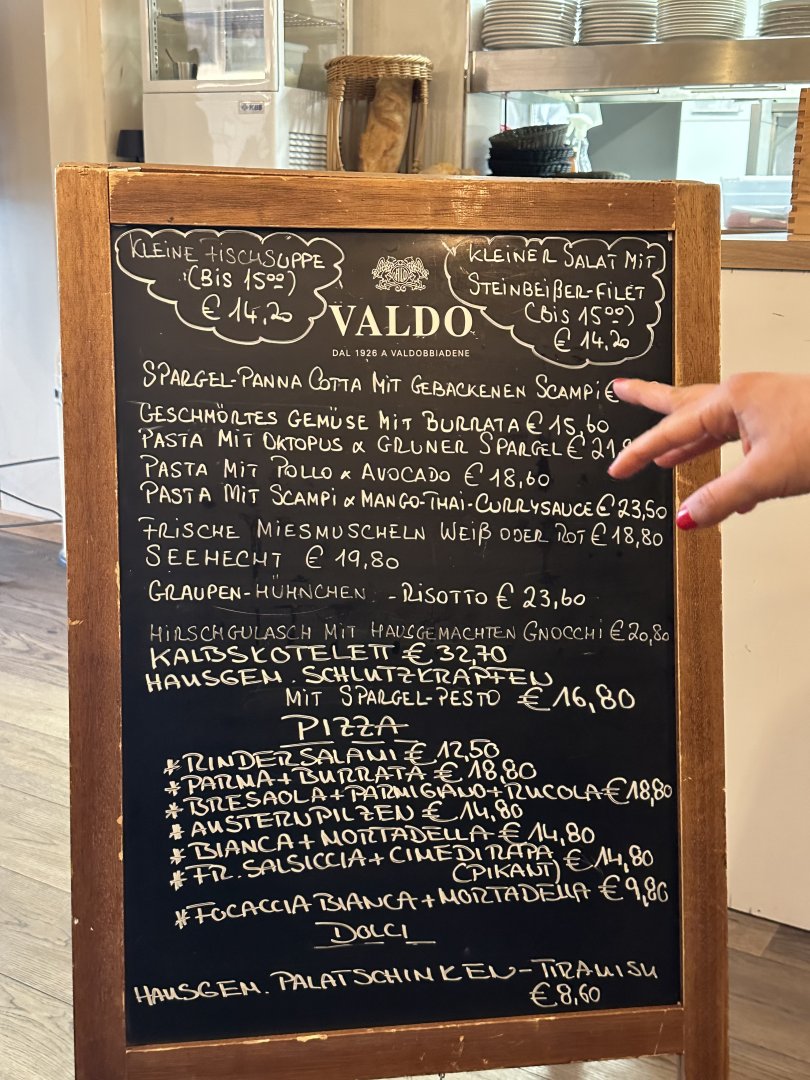 KBS
KLEINE FISCHSUPPE
(BIS 15⁰⁰)
€ 14,20
KLEINER SALAT MIT
STEINBEIßER-FILET
(BIS 15⁰⁰)
€ 14,20
VALDO
DAL 1926 A VALDOBBIADENE
SPARGEL-PANNA COTTA MIT GEBACKENEN SCAMPI €
GESCHMÖRTES GEMÜSE MIT BURRATA € 15,60
PASTA MIT OKTOPUS & GRÜNER SPARGEL € 21,
PASTA MIT POLLO & AVOCADO € 18,60
PASTA MIT SCAMPI & MANGO-THAI-CURRYSAUCE € 23,50
FRISCHE MIESMUSCHELN WEIß ODER ROT € 18,80
SEEHECHT € 19,80
GRAUPEN-HÜHNCHEN -RISOTTO € 23,60
HIRSCHGULASCH MIT HAUSGEMACHTEN GNOCCHI € 20,80
KALBSKOTELETT € 32,70
HAUSGEM. SCHLUTZKRAPFEN
MIT SPARGEL-PESTO € 16,80
PIZZA
*RINDERSALAMI € 12,50
*PARMA+BURRATA € 18,80
*BRESAOLA+PARMIGIANO+RUCOLA € 18,80
*AUSTERNPILZEN € 14,80
*BIANCA+MORTADELLA € 14,80
*FR. SALSICCIA+CIME DI RAPA € 14,80
(PIKANT)
*FOCACCIA BIANCA+MORTADELLA € 9,80
DOLCI
HAUSGEM. PALATSCHINKEN-TIRAMISU
€ 8,60